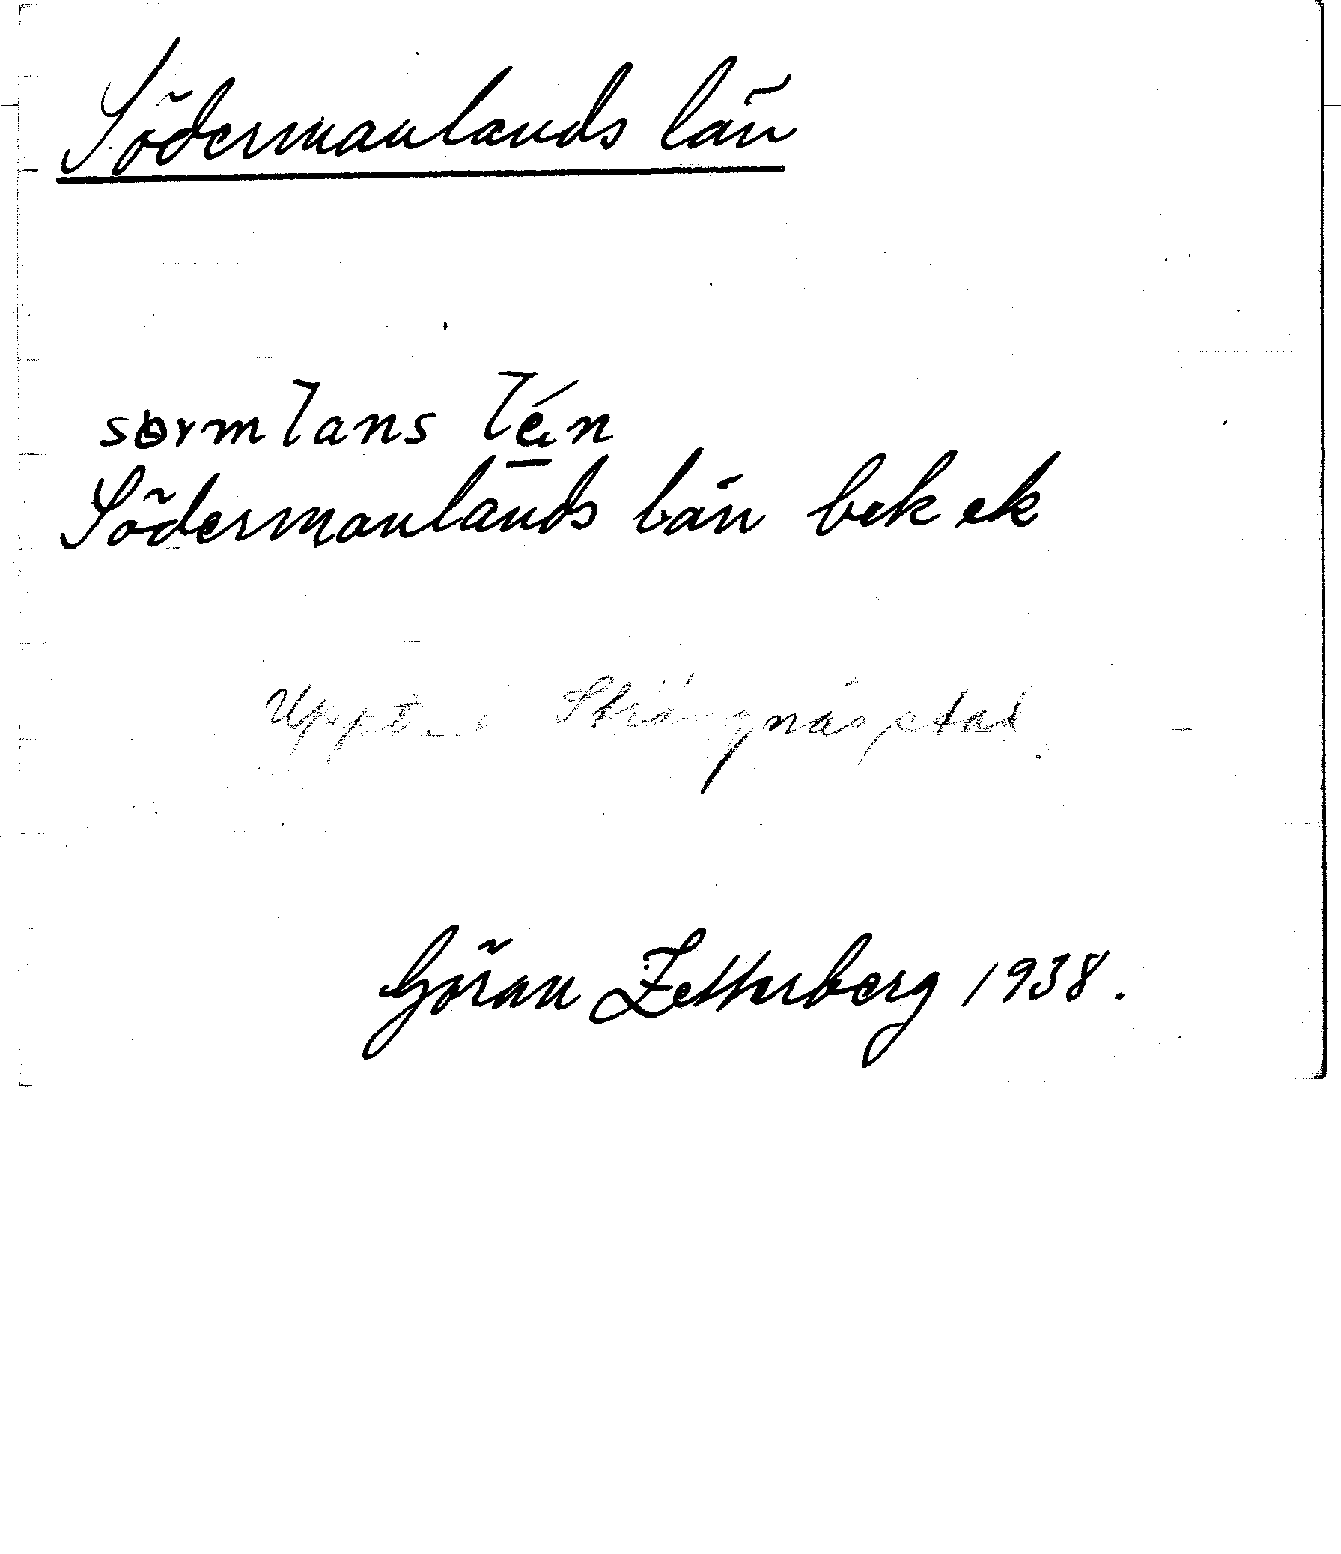 Södermanlands län
sørmlans lén
Södermanlands län bek ek
Uppt. i Strängnäs stad.
Göran Zetterberg 1938.